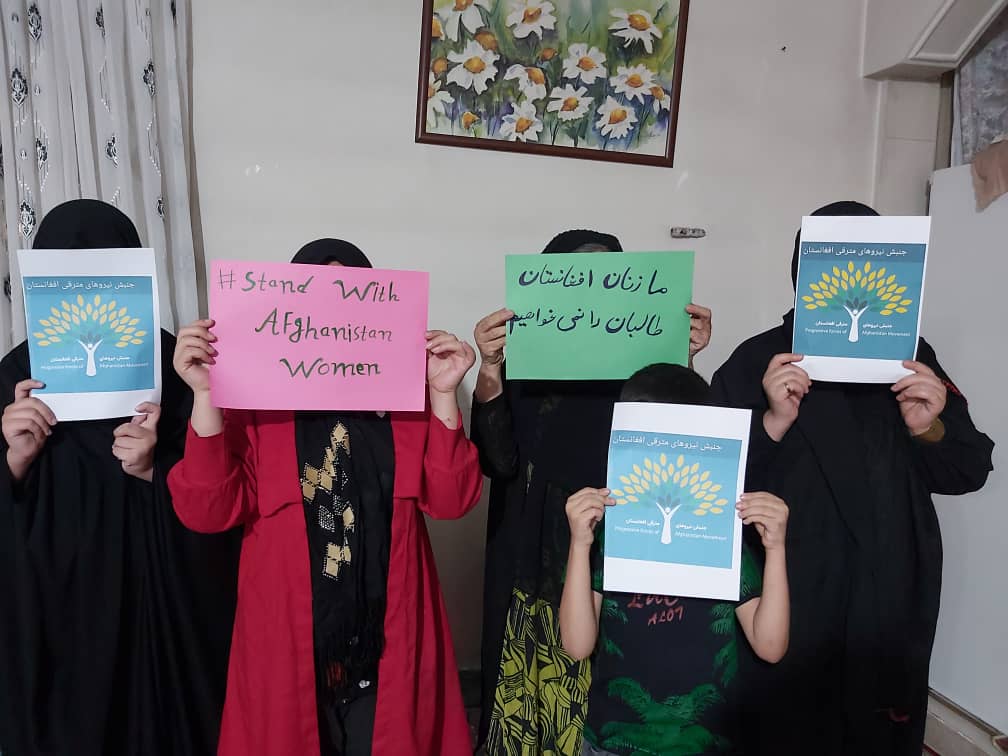 جنبش نیروهای مترقی افغانستان
جنبش نیروهای مترقی افغانستان
Progressive Forces of Afghanistan Movement
#Stand With
Afghanistan
Women
ما زنان افغانستان
طالبان را نمی خواهیم
جنبش نیروهای مترقی افغانستان
جنبش نیروهای مترقی افغانستان
Progressive Forces of Afghanistan Movement
جنبش نیروهای مترقی افغانستان
جنبش نیروهای مترقی افغانستان
Progressive Forces of Afghanistan Movement